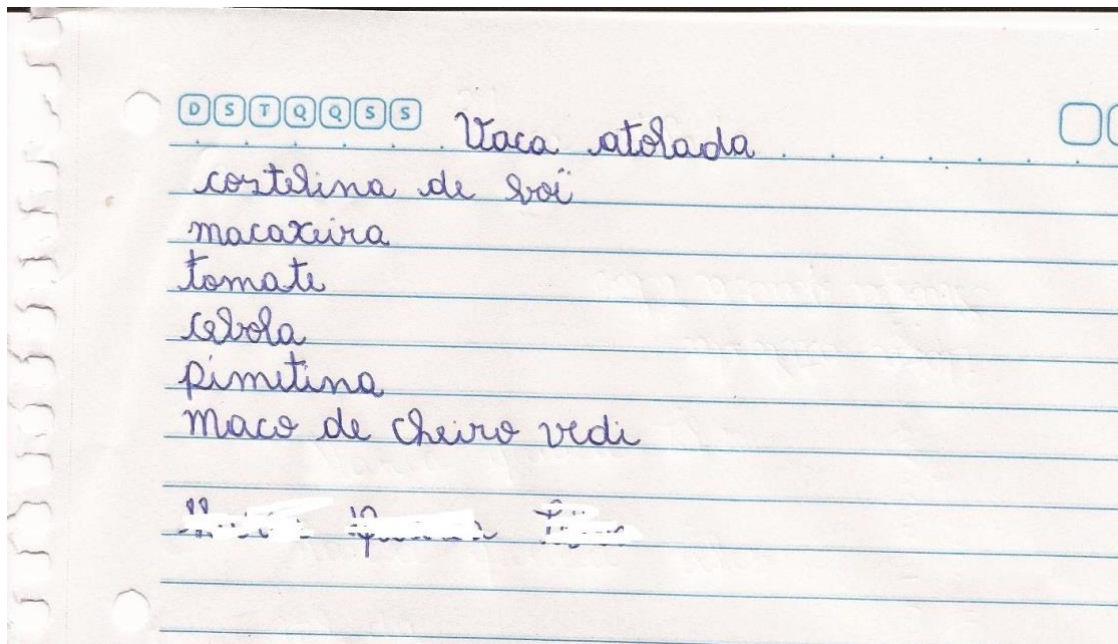 D S T Q Q S S
Vaca atolada
costelina de boi
macaxeira
tomate
cebola
pimitina
maco de cheiro vedi